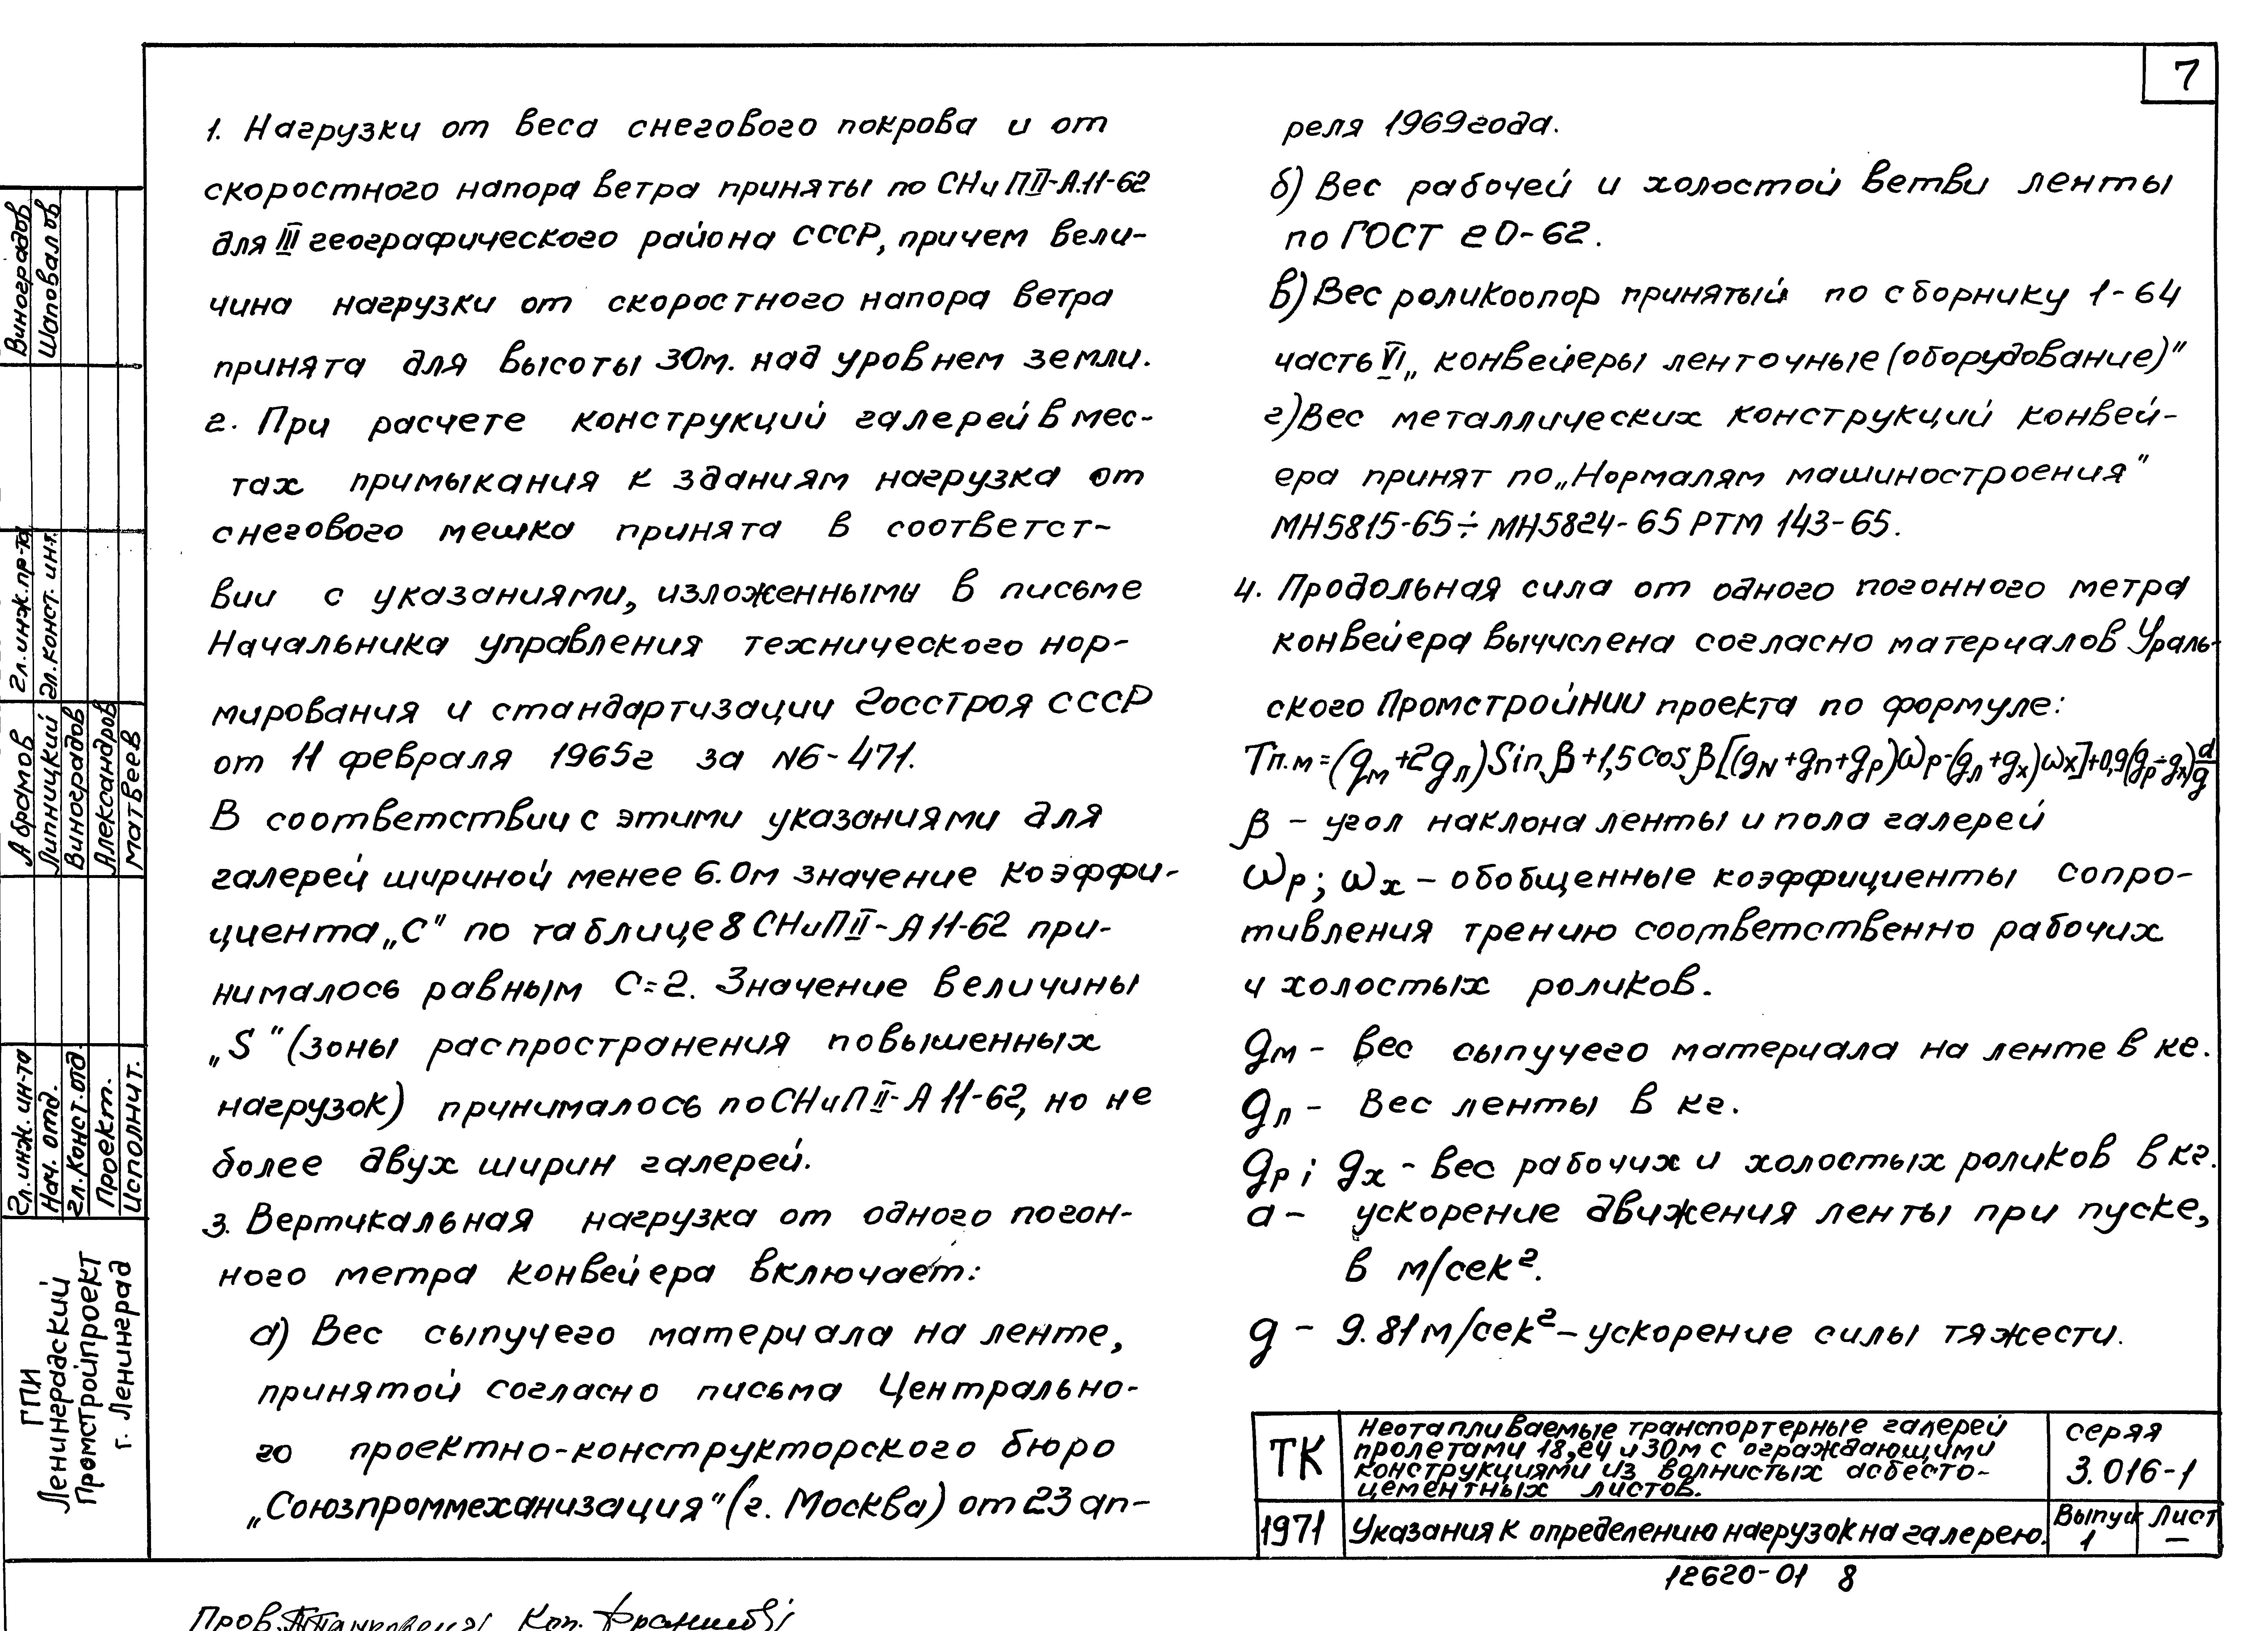 7
1. Нагрузки от веса снегового покрова и от
скоростного напора ветра приняты по СНиПII-А.11-62
для III географического района СССР, причем вели-
чина нагрузки от скоростного напора ветра
принята для высоты 30м. над уровнем земли.
2. При расчете конструкций галерей в мес-
тах примыкания к зданиям нагрузка от
снегового мешка принята в соответст-
вии с указаниями, изложенными в письме
Начальника управления технического нор-
мирования и стандартизации Госстроя СССР
от 11 февраля 1965г за N6-471.
В соответствии с этими указаниями для
галерей шириной менее 6.0м значение коэффи-
циента „С" по таблице 8 СНиПII-А 11-62 при-
нималось равным С=2. Значение величины
„S" (зоны распространения повышенных
нагрузок) принималось по СНиПII-А 11-62, но не
более двух ширин галерей.
3. Вертикальная нагрузка от одного погон-
ного метра конвейера включает:
а) Вес сыпучего материала на ленте,
принятой согласно письма Центрально-
го проектно-конструкторского бюро
„Союзпроммеханизация" (г. Москва) от 23 ап-
реля 1969года.
б) Вес рабочей и холостой ветви ленты
по ГОСТ 20-62.
в) Вес роликоопор принятый по сборнику 1-64
часть VI „конвейеры ленточные (оборудование)"
г) Вес металлических конструкций конвей-
ера принят по „Нормалям машиностроения"
МН5815-65÷МН5824-65 РТМ 143-65.
4. Продольная сила от одного погонного метра
конвейера вычислена согласно материалов Ураль-
ского ПромстройНИИ проекта по формуле:
Тп.м=(gм+2gл)Sinβ+1,5cosβ[(gN+gп+gр)ωр-(gл+gх)ωх]+0,9(gр÷gх)a/g
β – угол наклона ленты и пола галерей
ωр; ωх – обобщенные коэффициенты сопро-
тивления трению соответственно рабочих
и холостых роликов.
gм – вес сыпучего материала на ленте в кг.
gл – Вес ленты в кг.
gр; gх – вес рабочих и холостых роликов в кг.
а – ускорение движения ленты при пуске,
в м/сек².
g – 9.81м/сек² – ускорение силы тяжести.
ТК
Неотапливаемые транспортерные галерей
пролетами 18,24 и 30м с ограждающими
конструкциями из волнистых асбесто-
цементных листов.
серяя
3.016-1
1971
Указания к определению нагрузок на галерею.
Выпуск
1
Лист
—
12620-01 8
Виноградов
Шаповалов
Гл.инж.пр-та
Гл.конст. инт.
Абрамов
Липницкий
Виноградов
Александров
Матвеев
Гл.инж. ин-та
Нач. отд.
Гл.Конст.отд.
Проект.
Исполнит.
ГПИ
Ленинградский
Промстройпроект
г. Ленинград
Пров. Коп.